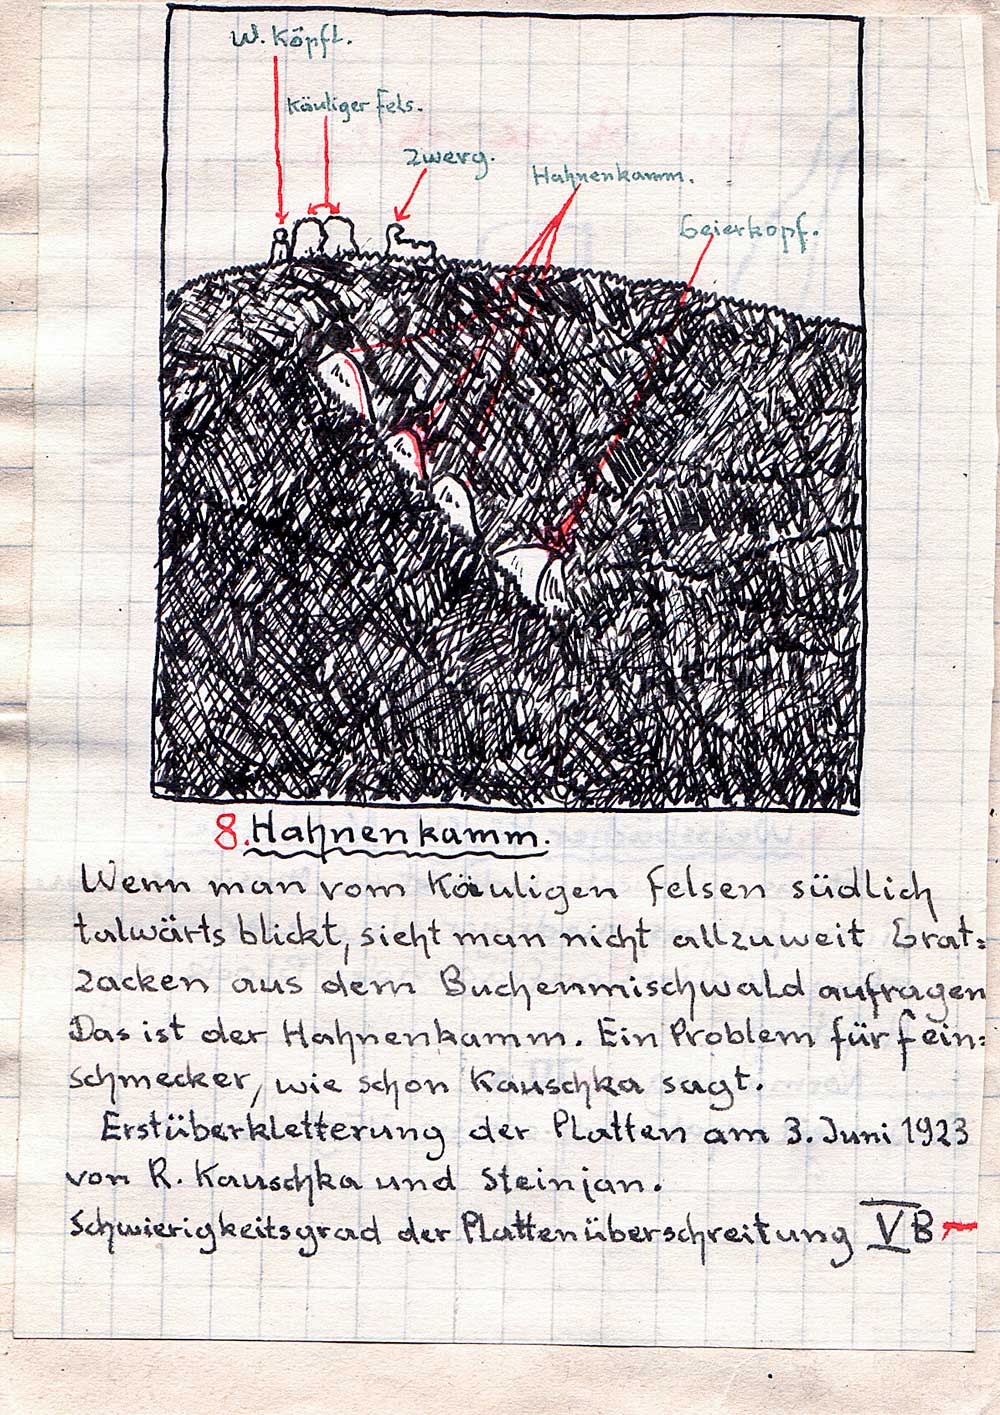 W. Köpfl.
Käuliger Fels.
Zwerg.
Hahnenkamm.
Geierkopf.
8. Hahnenkamm.
Wenn man vom Käuligen Felsen südlich
talwärts blickt, sieht man nicht allzuweit Grat=
zacken aus dem Buchenmischwald aufragen
Das ist der Hahnenkamm. Ein Problem für Fein=
schmecker, wie schon Kauschka sagt.
Erstüberkletterung der Platten am 3. Juni 1923
von R. Kauschka und Steinjan.
Schwierigkeitsgrad der Plattenüberschreitung V B-